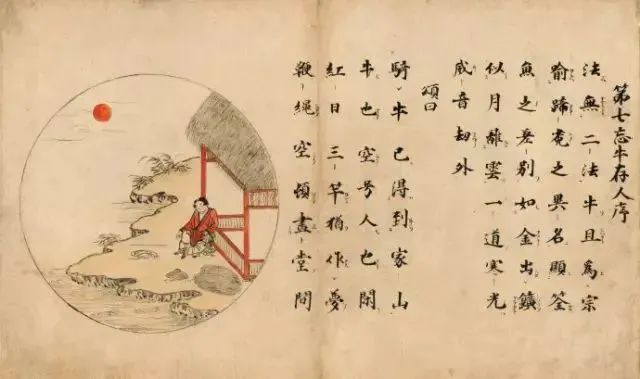 第七忘牛存人序
法無二法牛且爲宗
喻蹄菟之異名顯筌
魚之差別如金出鑛
似月離雲一道寒光
威音劫外
頌曰
騎牛已得到家山
牛也空兮人也閑
紅日三竿猶作夢
鞭繩空頓草堂間